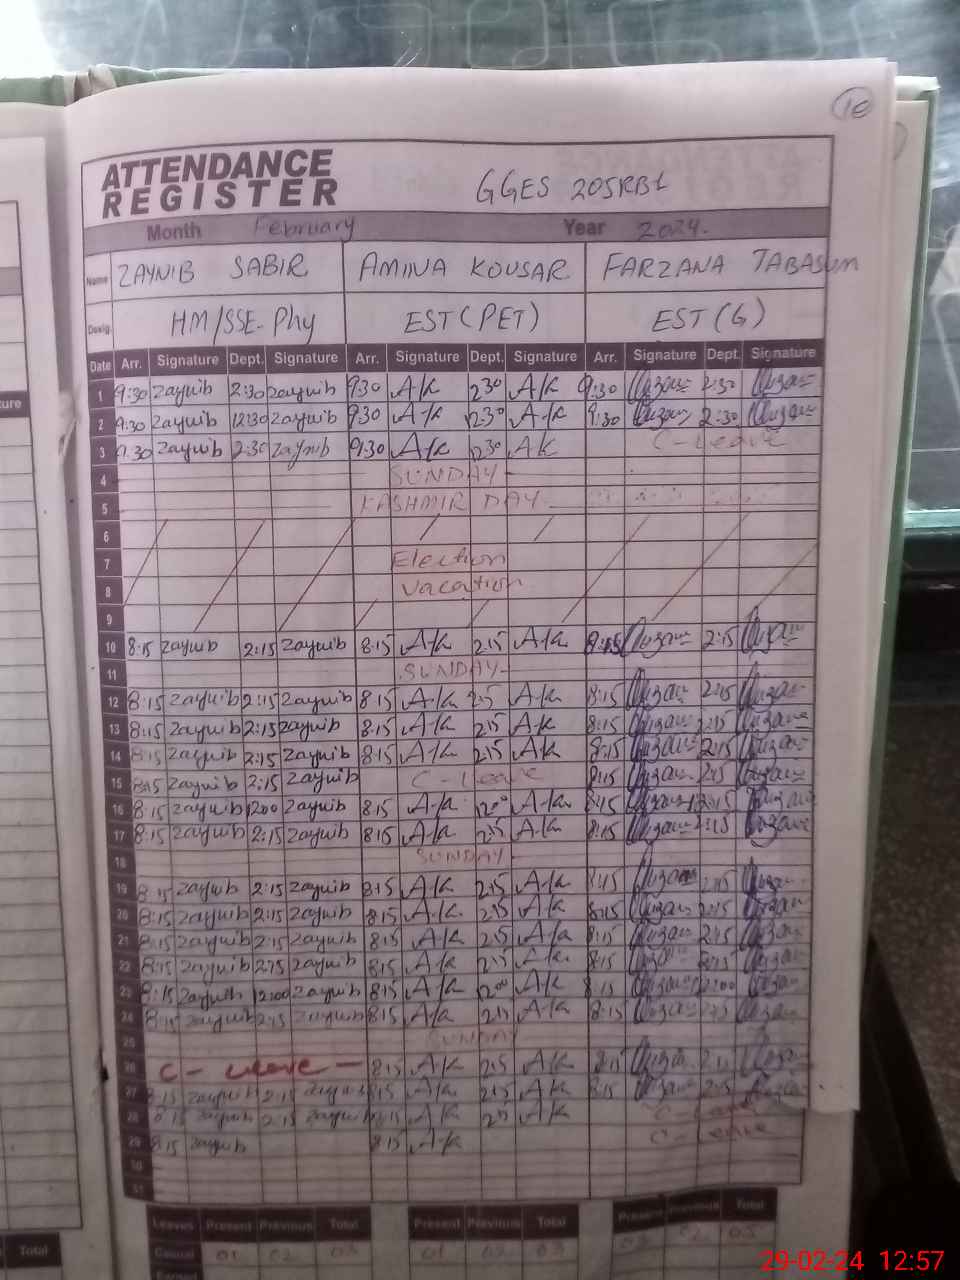 10
ATTENDANCE
REGISTER
GGES 205RB1
Month February Year 2024.
Name ZAYNIB SABIR AMINA KOUSAR FARZANA TABASUM
Desig. HM/SSE-Phy EST(PET) EST(G)
Date Arr. Signature Dept. Signature Arr. Signature Dept. Signature Arr. Signature Dept. Signature
1 9:30 zaynib 2:30 zaynib 9:30 A/k 2:30 A/k 9:30 2:30
2 9:30 zaynib 12:30 zaynib 9:30 A/k 12:30 A/k 9:30 2:30
3 9:30 zaynib 2:30 zaynib 9:30 A/k 12:30 A/k C-Leave
4 SUNDAY-
5 KASHMIR DAY
6
7 Election
8 vacation
9
10 8:15 zaynib 2:15 zaynib 8:15 A/k 2:15 A/k 8:15 2:15
11 SUNDAY-
12 8:15 zaynib 2:15 zaynib 8:15 A/k 2:15 A/k 8:15 2:15
13 8:15 zaynib 2:15 zaynib 8:15 A/k 2:15 A/k 8:15 2:15
14 8:15 zaynib 2:15 zaynib 8:15 A/k 2:15 A/k 8:15 2:15
15 8:15 zaynib 2:15 zaynib C-Leave 8:15 2:15
16 8:15 zaynib 1200 zaynib 8:15 A/k 1200 A/k 8:15
17 8:15 zaynib 2:15 zaynib 8:15 A/k 2:15 A/k 8:15 2:15
18 SUNDAY-
19 8:15 zaynib 2:15 zaynib 8:15 A/k 2:15 A/k 8:15 2:15
20 8:15 zaynib 2:15 zaynib 8:15 A/k 2:15 A/k 8:15 2:15
21 8:15 zaynib 2:15 zaynib 8:15 A/k 2:15 A/k 8:15 2:15
22 8:15 zaynib 2:15 zaynib 8:15 A/k 2:15 A/k 8:15 2:15
23 8:15 zaynib 12:00 zaynib 8:15 A/k 1200 A/k 8:15 12:00
24 8:15 zaynib 2:15 zaynib 8:15 A/k 2:15 A/k 8:15 2:15
25 SUNDAY
26 C-Leave- 8:15 A/k 2:15 A/k 8:15 2:15
27 8:15 zaynib 2:15 zaynib 8:15 A/k 2:15 A/k 8:15 2:15
28 8:15 zaynib 2:15 zaynib 8:15 A/k 2:15 A/k C-Leave
29 8:15 zaynib 8:15 A/k C-Leave
30
31
Leaves Present Previous Total Present Previous Total Present Previous Total
Casual 01 02 03 01 02 03 03 02 05
ture
Total
29-02-24 12:57